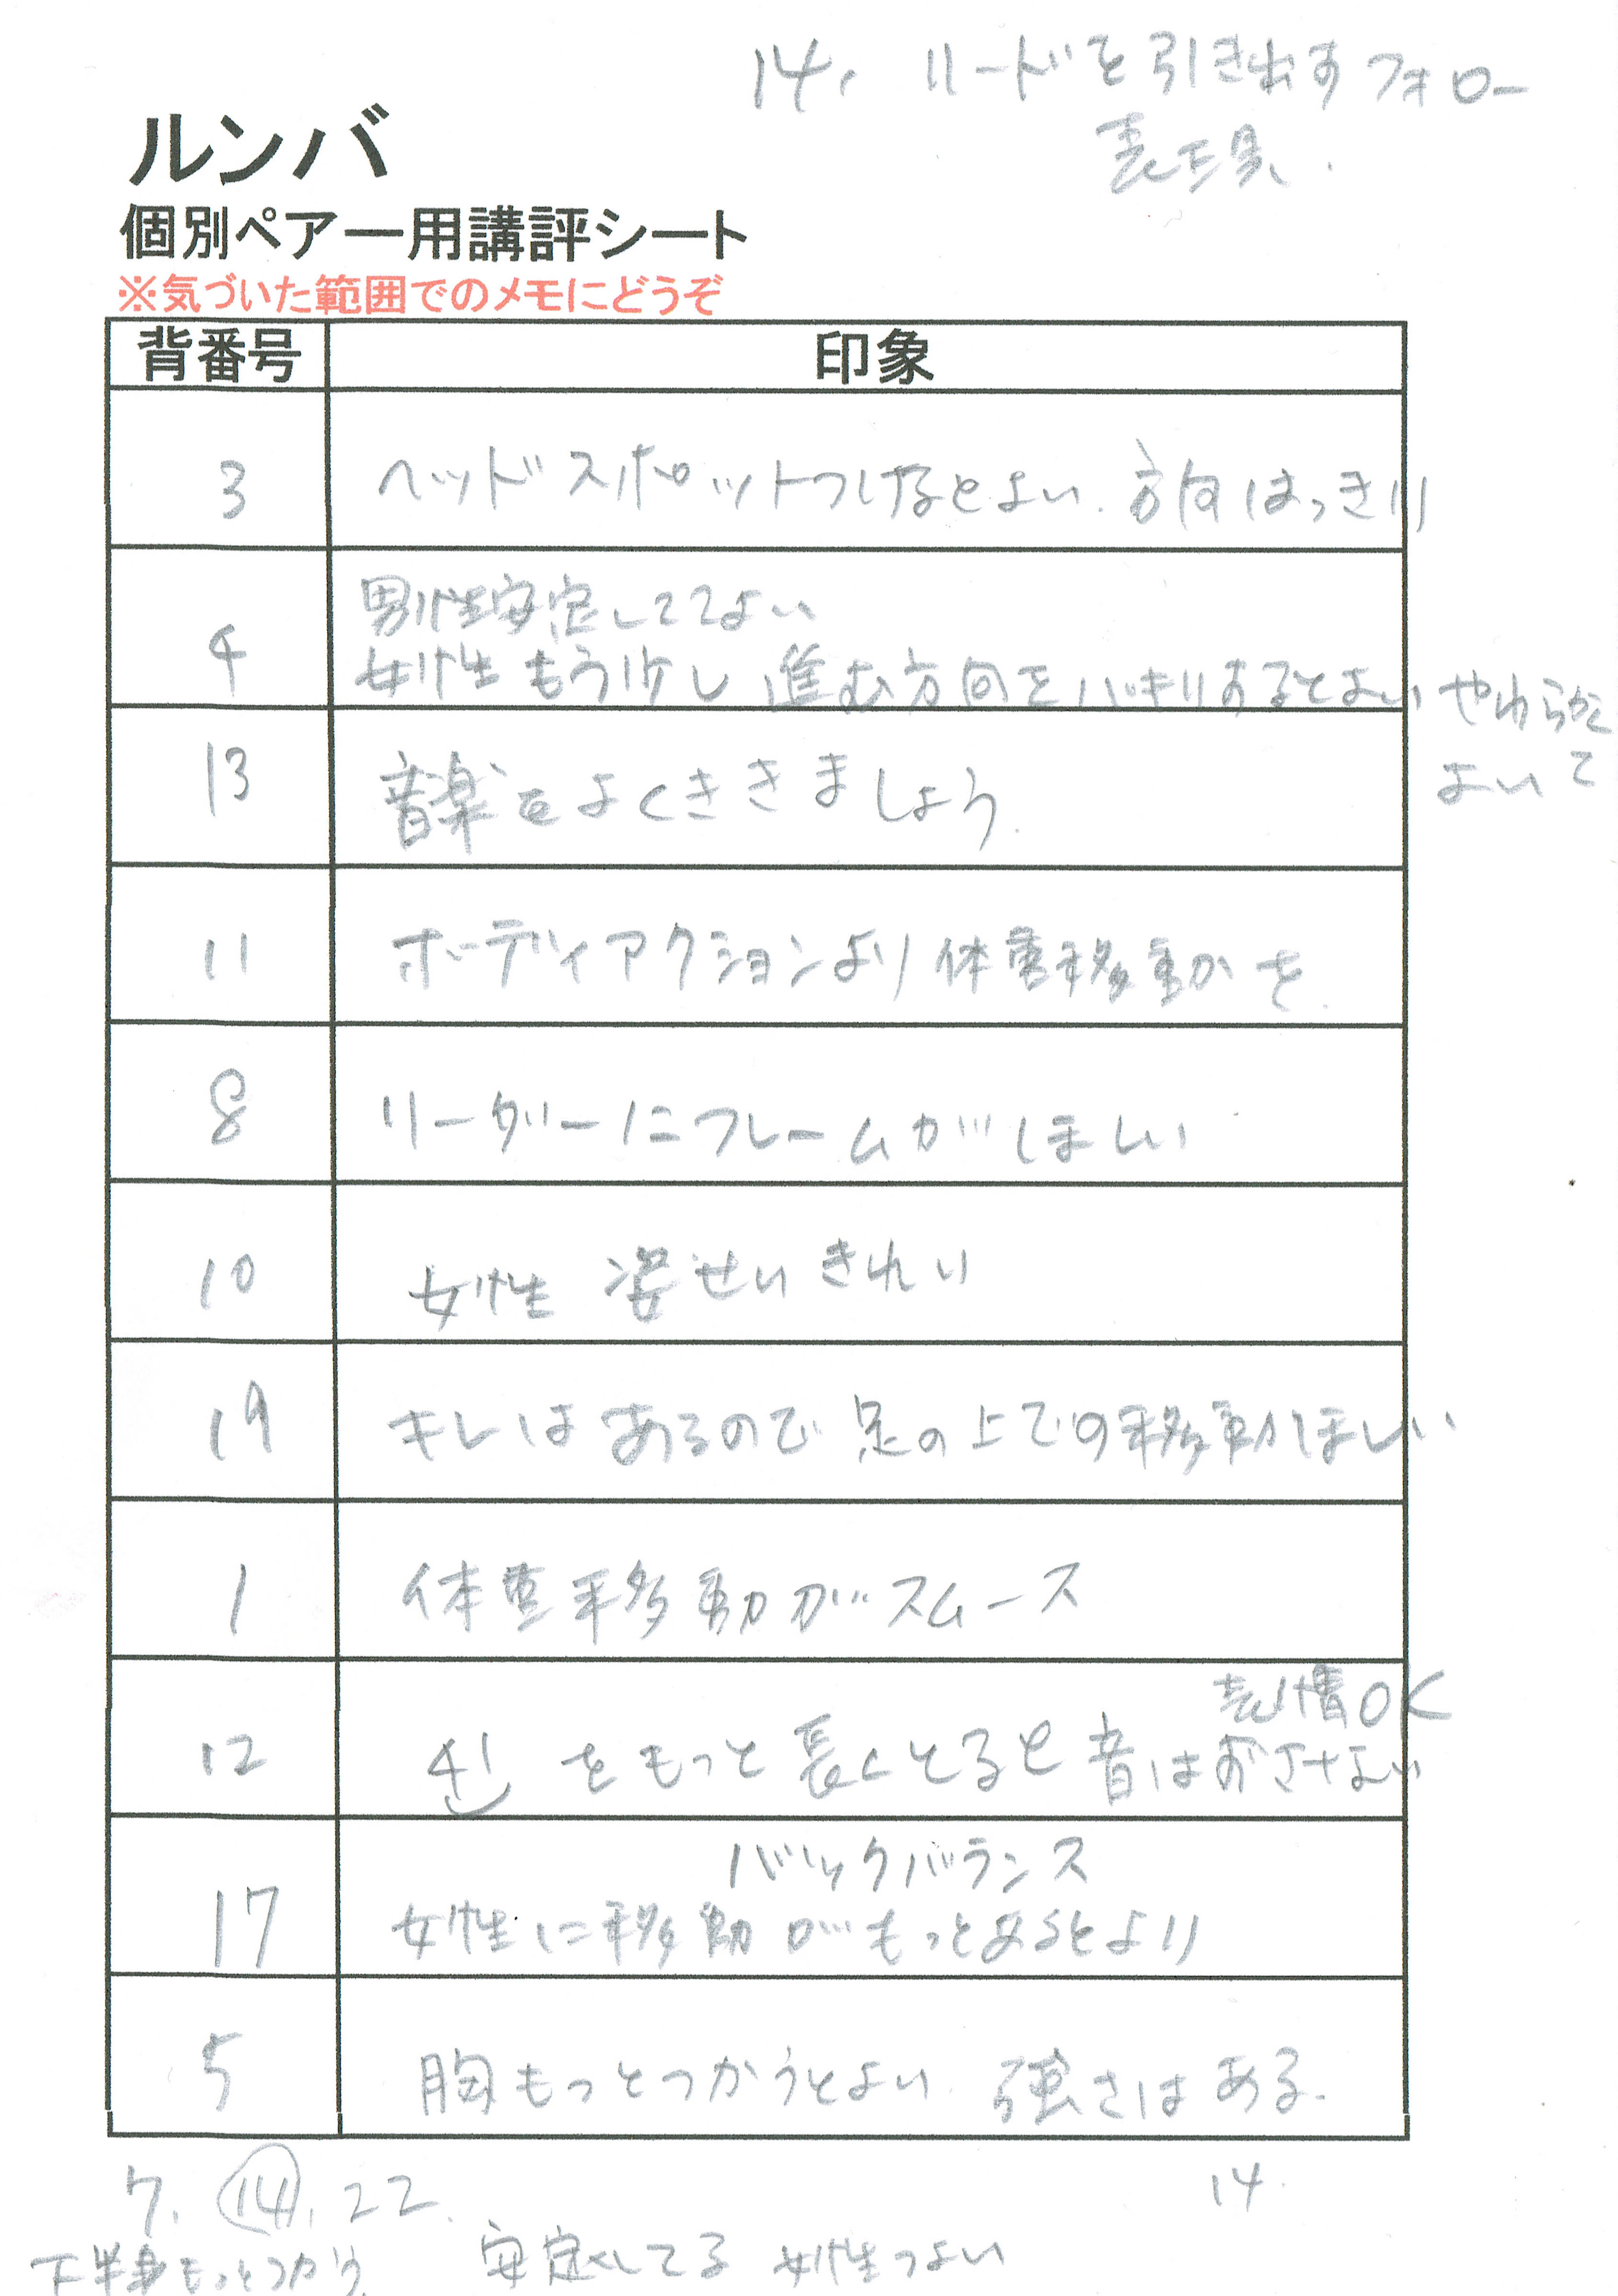 14. リードを引き出すフォロー
表現.
ルンバ
個別ペアー用講評シート
※気づいた範囲でのメモにどうぞ
背番号 印象
3 ヘッドスポットつけるとよい. 方向はっきり
4 男性安定しててよい
女性もう少し進む方向をハッキリするとよい やわらかくて
よい
13 音楽をよくききましょう.
11 ボーディアクションより体重移動を.
8 リーダーにフレームがほしい
10 女性 姿せいきれい
19 キレはあるので足の上での移動ほしい
1 体重移動がスムース
表情OK
12 41 をもっと長くとると音はずさない
バックバランス
17 女性に移動がもっとあるとより
5 胸もっとつかうとよい. 強さはある.
7. 14. 22. 14.
下半身もっとつかう 安定してる 女性つよい